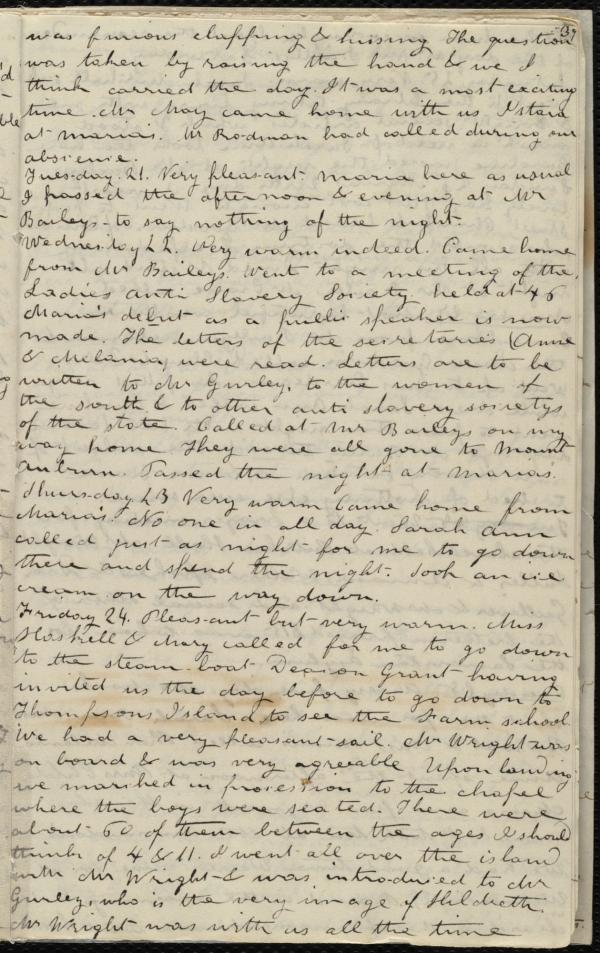 39
was furious clapping & hissing The question
was taken by raising the hand & we I
think carried the day. It was a most exciting
time. Mr May came home with us I staid
at Maria's. Mr Rodman had called during our
abscience.
Tuesday. 21. Very pleasant Maria here as usual
I passed the afternoon & evening at Mr
Baileys - to say nothing of the night.
Wednesday 22. Very warm indeed. Came home
from Mr Baileys. Went to a meeting of the
Ladies anti Slavery Society held at 46
Maria's debut as a public speaker is now
made. The letters of the secretaries (Anne
& Melania, were read. Letters are to be
written to Mr Gurley, to the women of
the south & to other anti slavery societys
of the state. Called at Mr Baileys on my
way home They were all gone to Mount
Auburn. Passed the night at Marias.
Thursday 23 Very warm Came home from
Maria's. No one in all day. Sarah Ann
called just as night for me to go down
there and spend the night. Took an ice
cream on the way down.
Friday 24. Pleasant but very warm. Miss
Haskell & Mary called for me to go down
to the steam boat Deacon Grant having
invited us the day before to go down to
Thompsons Island to see the Farm school.
We had a very pleasant sail. Mr Wright was
on board & was very agreeable Upon landing
we marched in procession to the chapel
where the boys were seated. There were
about 60 of them between the ages I should
think of 4 & 11. I went all over the island
with Mr Wright & was introduced to Mr
Gurley, who is the very image of Hildreth.
Mr Wright was with us all the time